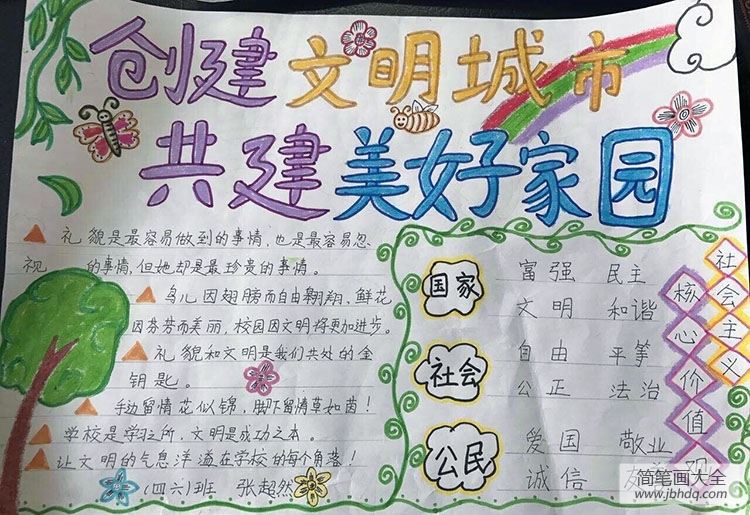 创建文明城市
共建美好家园
礼貌是最容易做到的事情,也是最容易忽
视 的事情,但她却是最珍贵的事情。
鸟儿因翅膀而自由翱翔,鲜花
因芬芳而美丽,校园因文明将更加进步。
礼貌和文明是我们共处的金
钥匙。
手动留情花似锦,脚下留情草如茵!
学校是学习之所,文明是成功之本。
让文明的气息洋溢在学校的每个角落!
(四六)班 张超然
国家
富强 民主
文明 和谐
社会
自由 平等
公正 法治
公民
爱国 敬业
诚信 友
社会主义
核心价值观
简笔画大全
www.jbhdq.com